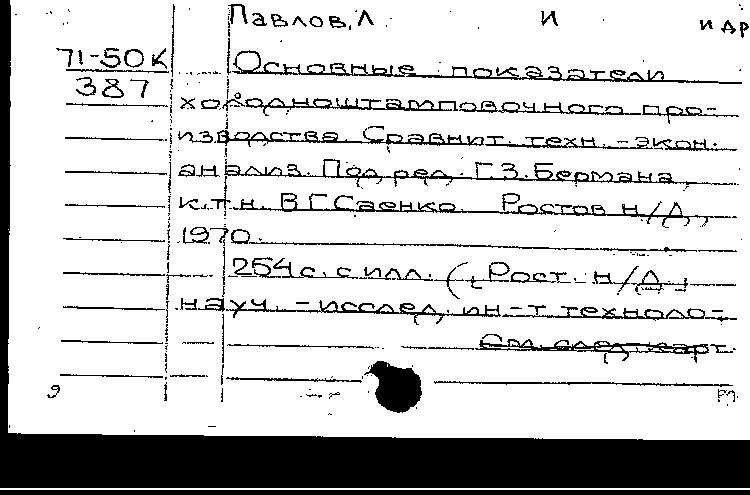 Павлов, Л И и др
71-50К Основные показатели
387 холодноштамповочного про-
изводства. Сравнит. техн. -экон.
анализ. Под ред. Г.З. Бермана,
к.т.н. В Г Саенко. Ростов н/Д,
1970.
254 с. с илл. (Рост. н/Д
науч. -исслед, ин-т техноло-
См. след карт.
9